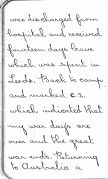 was discharged from
hospital and received
fourteen days leave
which was spent in
Leeds. Back to camp
and marked C.2.
which indicated that
my war days are
over and the great
war ends. Returning
to Australia a